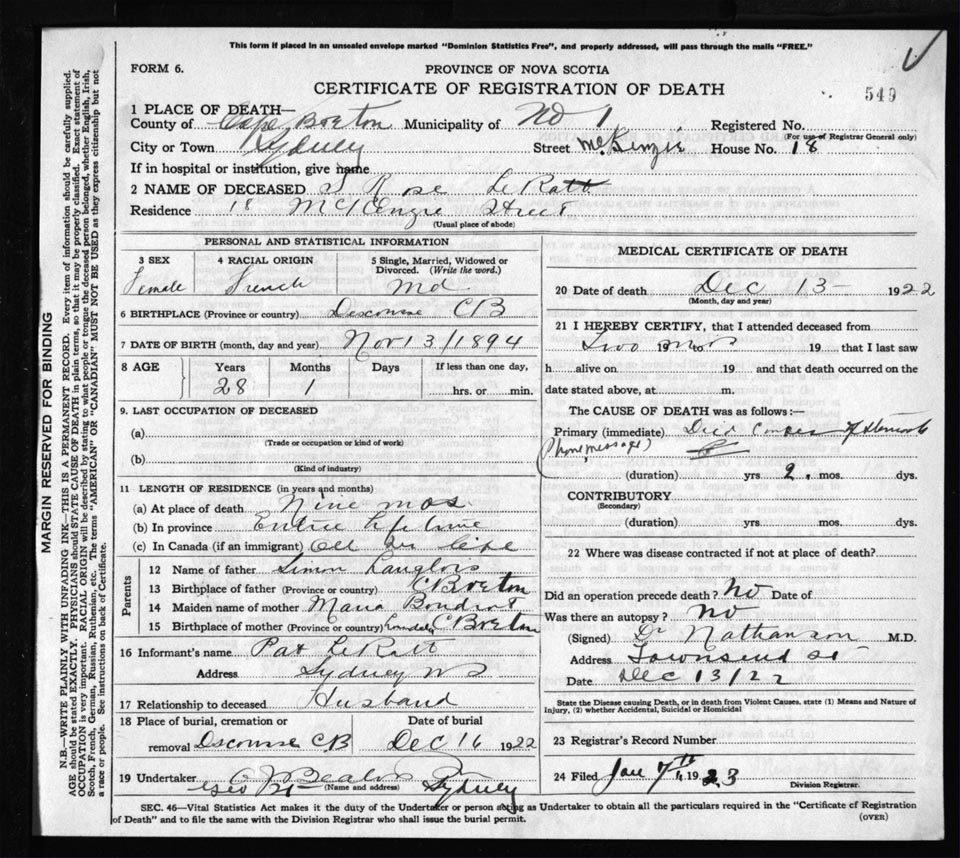 This form if placed in an unsealed envelope marked "Dominion Statistics Free", and properly addressed, will pass through the mails "FREE."
FORM 6.
PROVINCE OF NOVA SCOTIA
CERTIFICATE OF REGISTRATION OF DEATH
549
1 PLACE OF DEATH—
County of Cape Breton Municipality of No 1 Registered No.
(For use of Registrar General only)
City or Town Sydney Street McKenzie House No. 18
If in hospital or institution, give name
2 NAME OF DECEASED Rose LeRatt
Residence 18 McKenzie Street
(Usual place of abode)
PERSONAL AND STATISTICAL INFORMATION
3 SEX 4 RACIAL ORIGIN 5 Single, Married, Widowed or Divorced. (Write the word.)
Female French Md
6 BIRTHPLACE (Province or country) Descousse CB
7 DATE OF BIRTH (month, day and year) Nov 13/1894
8 AGE Years Months Days If less than one day,
28 1 hrs. or min.
9. LAST OCCUPATION OF DECEASED
(a)
(Trade or occupation or kind of work)
(b)
(Kind of industry)
11 LENGTH OF RESIDENCE (in years and months)
(a) At place of death Nine mos
(b) In province Entire life time
(c) In Canada (if an immigrant) All her life
Parents
12 Name of father Simon Langlois
13 Birthplace of father (Province or country) CBreton
14 Maiden name of mother Maria Boudrot
15 Birthplace of mother (Province or country) CBreton
16 Informant's name Pat LeRatt
Address Sydney NS
17 Relationship to deceased Husband
18 Place of burial, cremation or removal Date of burial
Dscousse CB Dec 16 1922
19 Undertaker Sydney
(Name and address)
MEDICAL CERTIFICATE OF DEATH
20 Date of death Dec 13 1922
(Month, day and year)
21 I HEREBY CERTIFY, that I attended deceased from
Two mos 19 to 19 that I last saw
h alive on 19 and that death occurred on the
date stated above, at m.
The CAUSE OF DEATH was as follows:—
Primary (immediate) Died Cancer of Stomach
(Phone message)
(duration) yrs 2. mos. dys.
CONTRIBUTORY
(Secondary)
(duration) yrs. mos. dys.
22 Where was disease contracted if not at place of death?
Did an operation precede death? No Date of
Was there an autopsy? No
(Signed) Dr Nathanson M.D.
Address Townsend St
Date Dec 13/22
State the Disease causing Death, or in death from Violent Causes, state (1) Means and Nature of
Injury, (2) whether Accidental, Suicidal or Homicidal
23 Registrar's Record Number
24 Filed Jan 7th 1923
Division Registrar.
SEC. 46—Vital Statistics Act makes it the duty of the Undertaker or person acting as Undertaker to obtain all the particulars required in the "Certificate of Registration
of Death" and to file the same with the Division Registrar who shall issue the burial permit.
(OVER)
MARGIN RESERVED FOR BINDING
N.B.—WRITE PLAINLY WITH UNFADING INK—THIS IS A PERMANENT RECORD. Every item of information should be carefully supplied.
AGE should be stated EXACTLY. PHYSICIANS should STATE CAUSE OF DEATH in plain terms, so that it may be properly classified. Exact statement of
OCCUPATION is very important. RACIAL ORIGIN will be described by stating to what people or tongue the deceased person belonged, whether English, Irish,
Scotch, French, German, Russian, Ruthenian, etc. The terms "AMERICAN" OR "CANADIAN" MUST NOT BE USED as they express citizenship but not
a race or people. See instructions on back of Certificate.